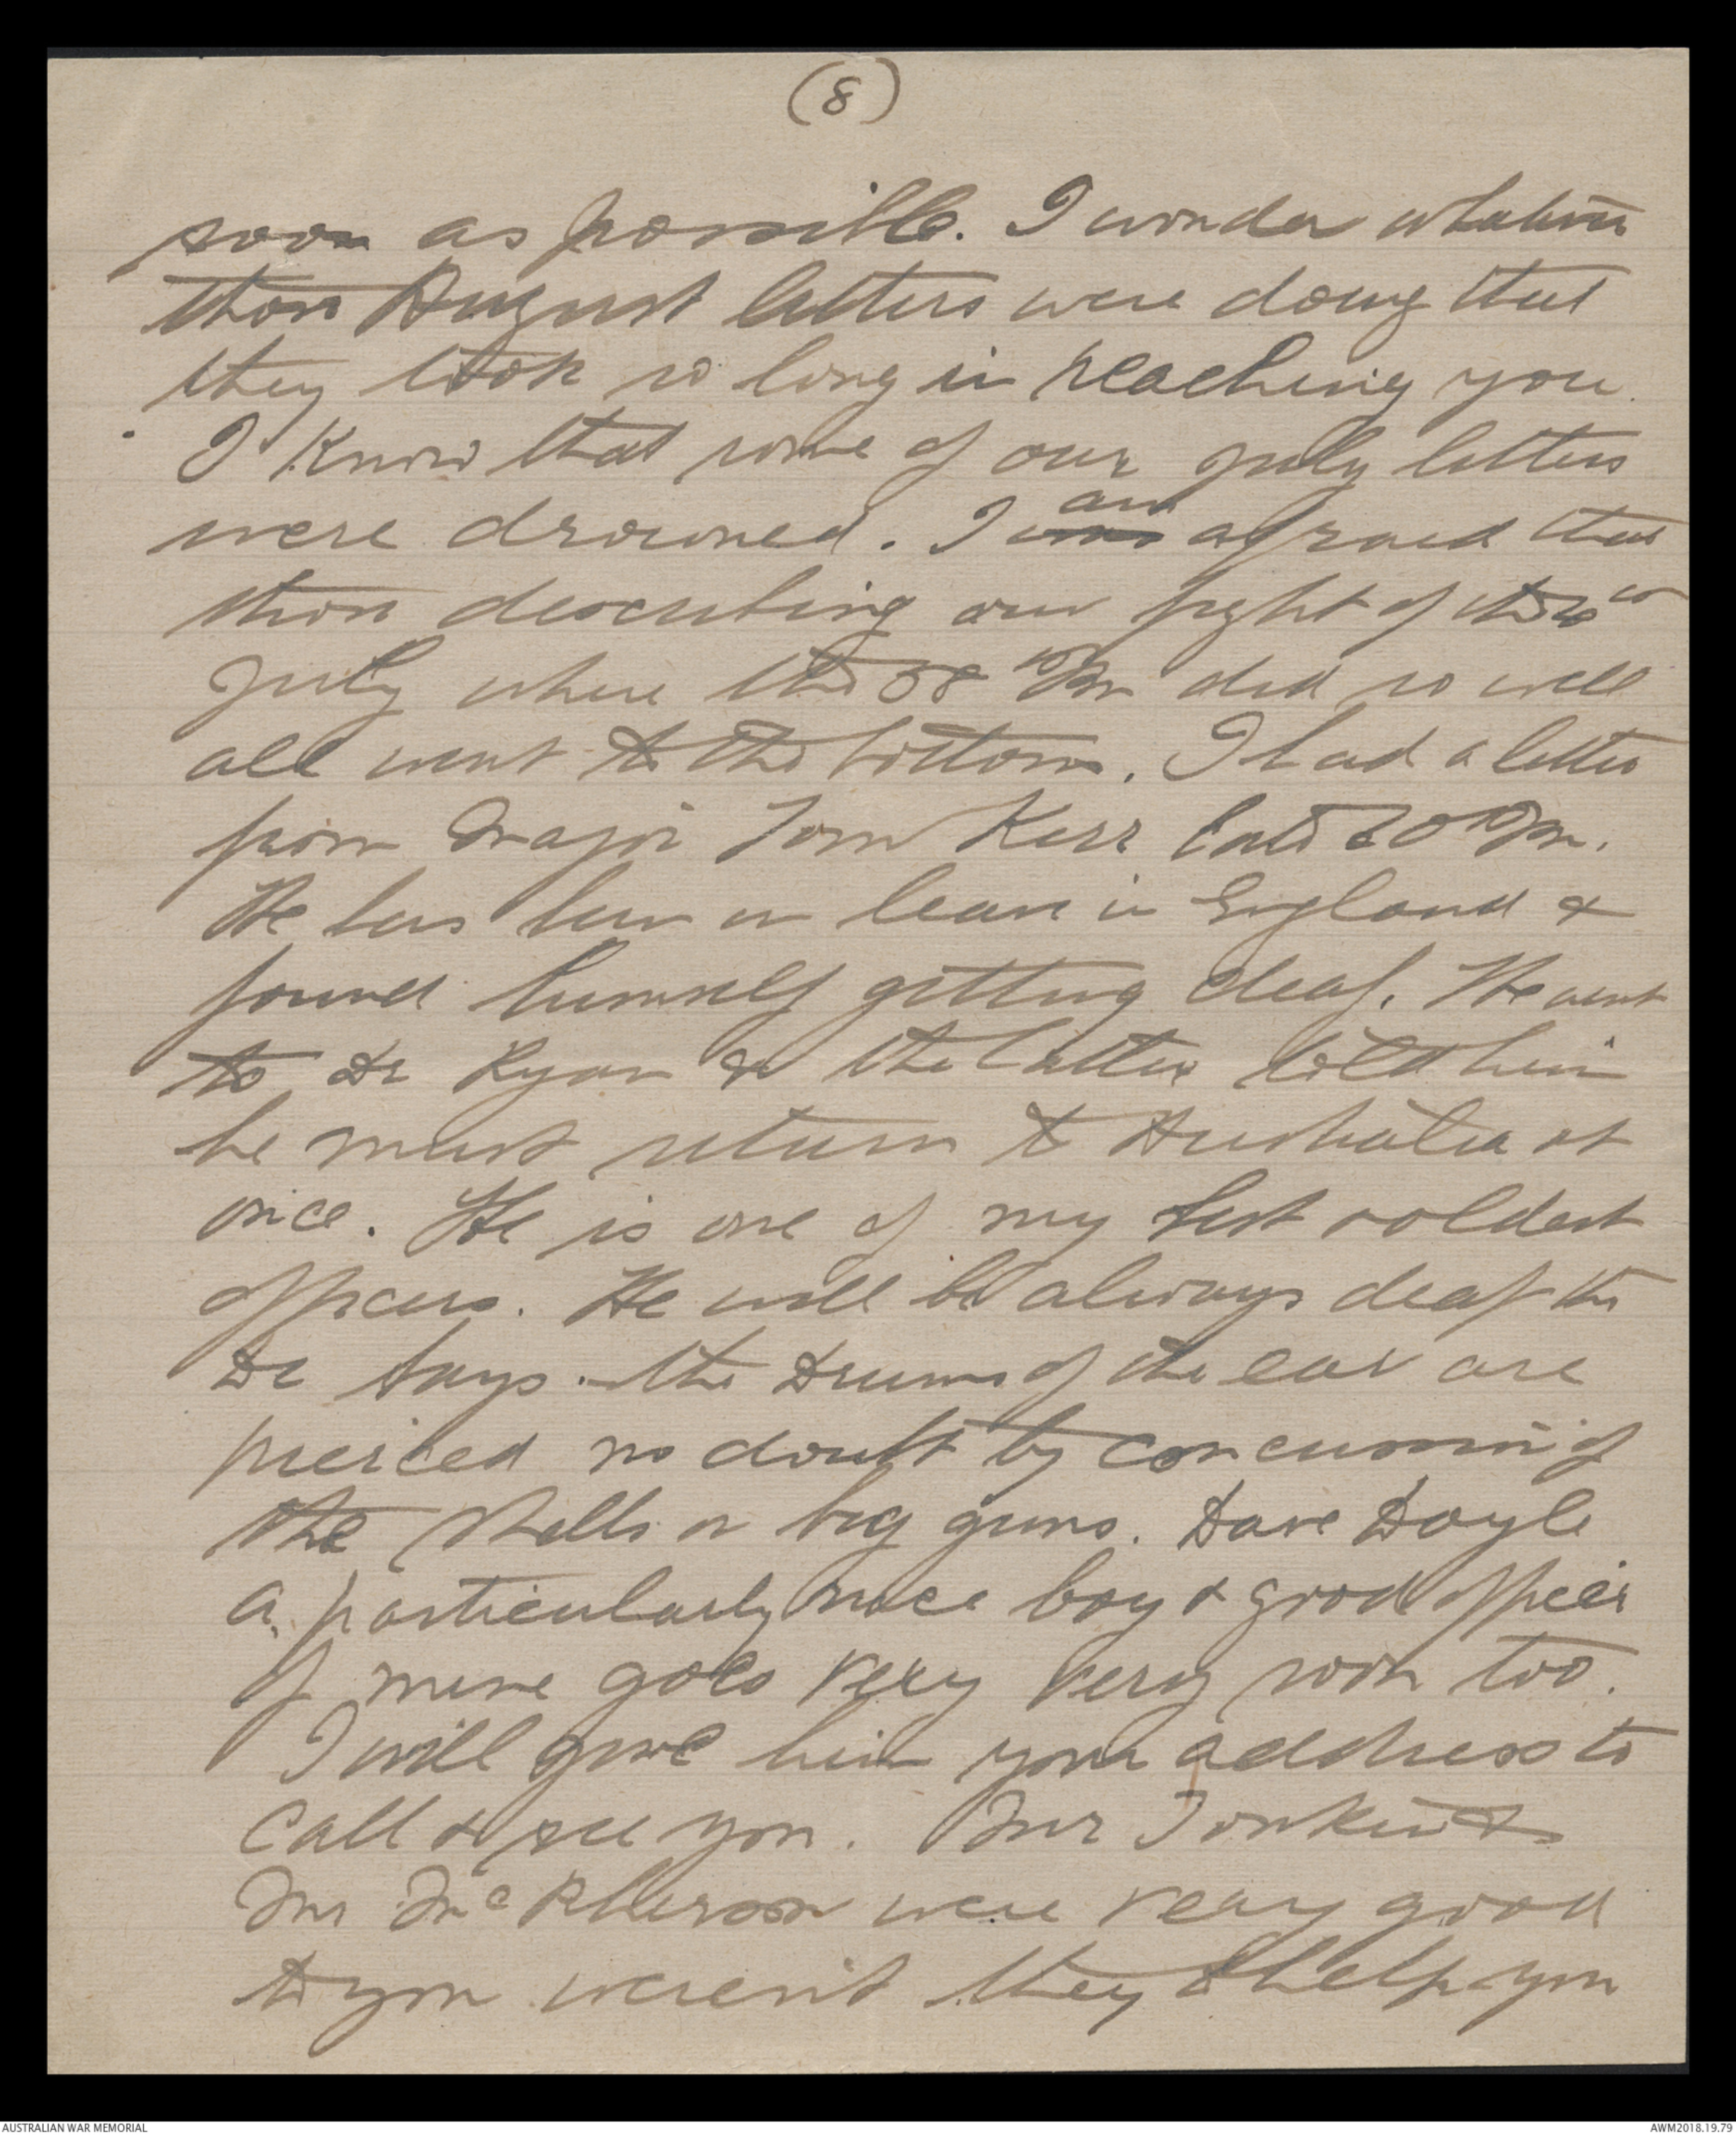 (8)
soon as possible. I wonder whatever
those August letters were doing that
they took so long in reaching you.
I know that some of our July letters
were drowned. I was am afraid that
those describing our fight of the
July where the 58th Bn did so well
all went to the bottom. I had a letter
from Major Tom Kerr late 60th Bn.
He has been on leave in England &
found himself getting deaf. He went
to Dr Ryan & the latter told him
he must return to Australia at
once. He is one of my best & oldest
officers. He will be always deaf the
Dr says. The Drums of the ear are
pierced no doubt by concussion of
the shells or big guns. Dave Doyle
a particularly nice boy & good officer
of mine goes very very soon too.
I will give him your address to
Call & see you. Mr Tonkin &
Mr McPherson were very good
to you weren't they to help you
AUSTRALIAN WAR MEMORIAL
AWM2018.19.79